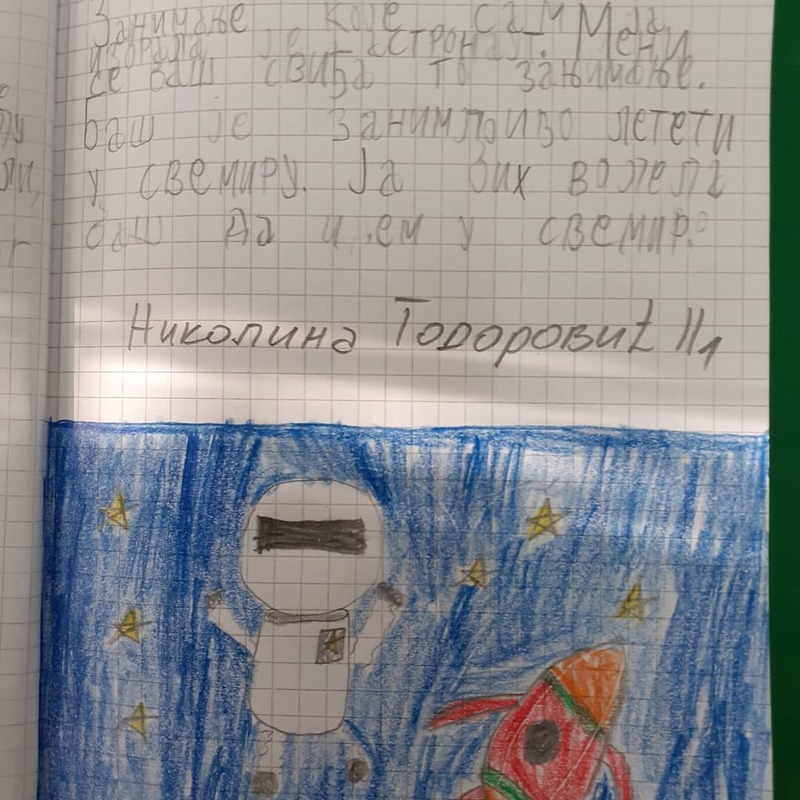 Занимање које сам ја
изабрала је астронаут. Мени
се баш свиђа то занимање.
Баш је занимљоиво летети
у свемиру. Ја бих волела
баш да и ем у свемир.
Николина Тодоровић II1